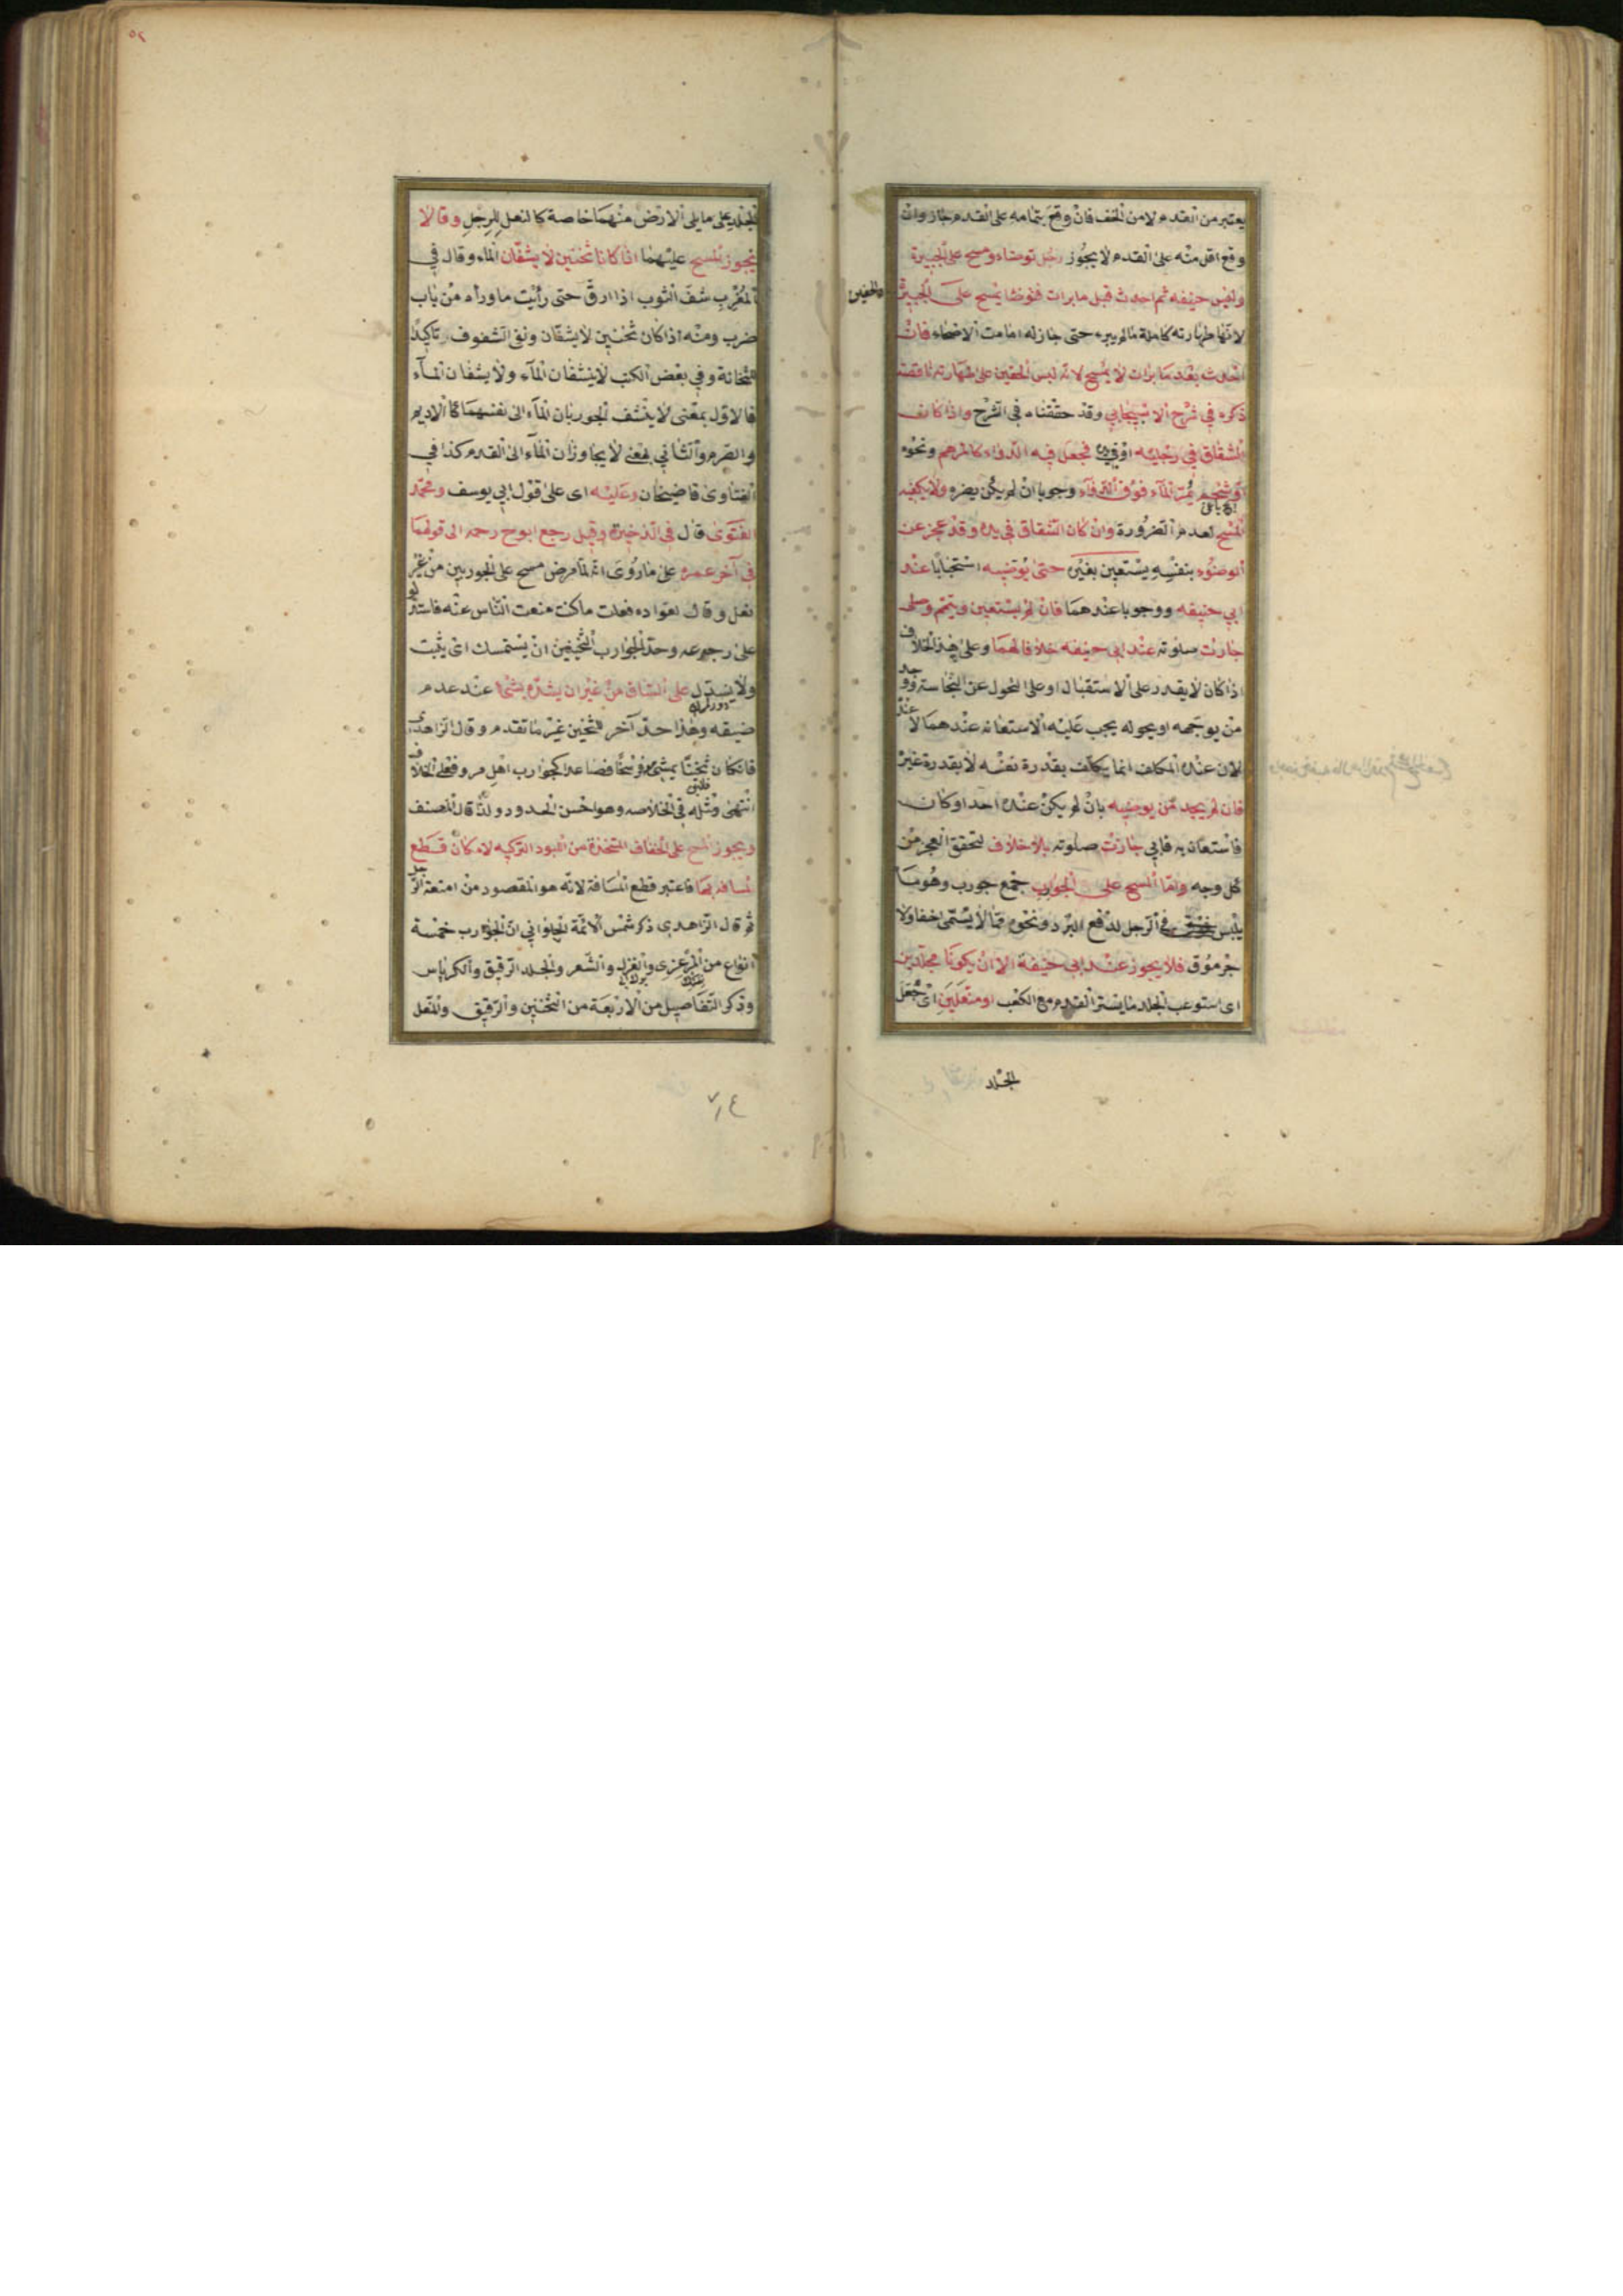 يعتبر من القدم لا من الخف فان وقع بتمامه على القدم جاز وان
وقع اقل منه على القدم لا يجوز رجل توضاء ومسح على الجبيرة
ولبس خفيه ثم احدث قبل ما برات فتوضا يمسح على الجبيرة
والخفين
لانها طهارته كاملة مالم يبرء حتى جاز له امامت الاصحاء فان
احدث بعد ما برات لا يمسح لانه لبس الخفين على طهارته ناقصة
ذكره في شرح الاسبيجابي وقد حققناه في الشرح واذا كانت
الشقاق في رجليه او في يده فجعل فيه الدواء كالمرهم ونحوه
او شحم يمر الماء فوق الدواء وجوبا ان لم يكن يضره ولا يكفيه
المسح لعدم الضرورة وان كان الشقاق في يده وقد عجز عن
الوضوء بنفسه يستعين بغيره حتى يوضيه استحبابا عند
ابي حنيفه ووجوبا عندهما فان لم يستعين ويتمم وصلى
جازت صلوته عند ابي حنيفه خلافا لهما وعلى هذا الخلاف
اذا كان لا يقدر على الاستقبال او على التحول عن النجاسة ووجد
من يوجهه او يحوله يجب عليه الاستعانه عندهما لا عنده
لان عنده المكلف انما يكلف بقدرة نفسه لا بقدرة غيره
فان لم يجد من يوضيه بان لم يكن عنده احد او كان
فاستعان به فابى جازت صلوته بلا خلاف لتحقق العجز من
كل وجه واما المسح على الجوارب جمع جورب وهو ما
يلبس في الرجل لدفع البرد ونحوه مما لا يسمى خفا ولا
جرموق فلا يجوز عند ابي حنيفة الا ان يكونا مجلدين
اى استوعب الجلد ما يستر القدم مع الكعب او منعلين اى جعل
الجلد
الجلد على ما يلى الارض منهما خاصة كالنعل للرجل وقالا
يجوز المسح عليهما اذا كانا ثخنين لا يشفان الماء وقال في
المغرب شف الثوب اذا رق حتى رأيت ما وراه من باب
ضرب ومنه اذا كان ثخنين لا يشفان ونفى الشفوف تاكيدا
للثخانة وفي بعض الكتب لا ينشفان الماء ولا يشفان الماء
فالاول بمعنى لا ينشف الجوربان الماء الى نفسهما كالاديم
والصرم والثاني بمعنى لا يجاوزان الماء الى القدم كذا في
الفتاوى قاضيخان وعليه اى على قول ابي يوسف ومحمد
الفتوى قال في الذخيرة وقيل رجع ابو ح رحمه الى قولهما
في آخر عمره على ما روى انه لما مرض مسح على الجوربين من غير
نعل وقال لعواده فعلت ما كنت منعت الناس عنه فاستدلوا
على رجوعه وحد الجوارب الثخينين ان يستمسك اى يثبت
ولا ينسدل على الساق من غير ان يشده بشئ عند عدم
ضيقه وهذا حد آخر للثخين غير ما تقدم وقال الزاهدى
فان كان ثخينا يمشى فرسخا فصاعدا كجوارب اهل مرو فعلى الخلاف
انتهى ومثله في الخلاصه وهو احسن الحدود ولذا قال المصنف
ويجوز المسح على الخفاف المتخذة من اللبود التركيه لانه كان قطع
المسافه بها فاعتبر قطع المسافة لانه هو المقصود من امتعة الرجل
ثم قال الزاهدى ذكر شمس الائمة الحلواني ان الجوارب خمسة
انواع من المرعزى والغزل والشعر والجلد الرقيق والكرباس
وذكر التفاصيل من الاربعة من الثخنين والرقيق والمنعل